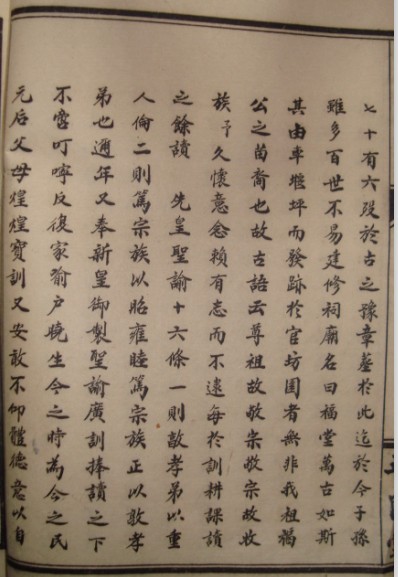 七十有六歿於古之豫章塟於此迄於今子孫
雖多百世不易建修祠廟名曰福堂萬古如斯
其由車堰坪而發跡於官坊圍者無非我祖禓
公之苗裔也故古語云尊祖故敬宗敬宗故收
族予久懷意念賴有志而不逮每於訓耕課讀
之餘讀 先皇聖諭十六條一則敦孝弟以重
人倫二則篤宗族以昭雍睦篤宗族正以敦孝
弟也邇年又奉新皇御製聖諭廣訓捧讀之下
不啻叮嚀反復家喻户曉生今之時為今之民
元后父母煌煌寳訓又安敢不仰體德意以自